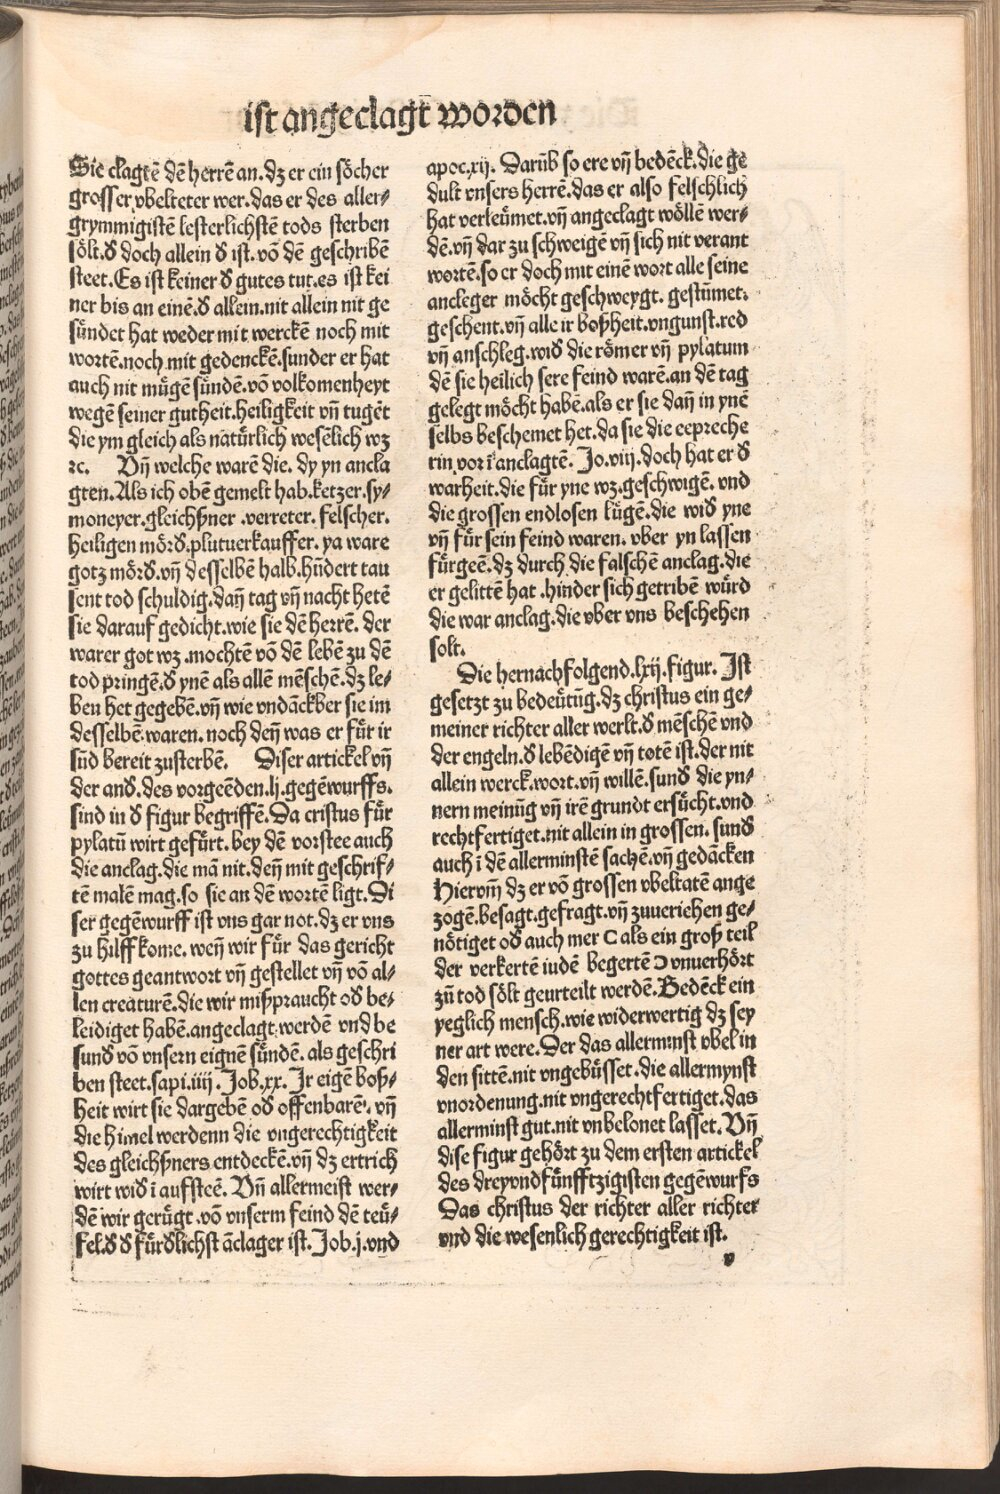 ist angeclagt worden
Sie clagtē dē herrē an.dz er ein sölcher
grosser vbelteter wer.das er des aller⸗
grymmigistē lesterlichstē tods sterben
sölt.ď doch allein ď ist.vō dē geschribē
steet.Es ist keiner ď gutes tut.es ist kei
ner bis an einē.ď allein.nit allein nit ge
sündet hat weder mit werckē noch mit
wortē.noch mit gedenckē.sunder er hat
auch nit mügē sündē.vō volkomenheyt
wegē seiner gutheit.heiligkeit vn̄ tugēt
die ym gleich als natürlich wesēlich wz
⁊c. Vn̄ welche warē die. dy yn ancla
gten.Als ich obē gemelt hab.ketzer.sy⸗
moneyer.gleichßner .verreter. felscher.
heiligen mörď.plutuerkauffer. ya ware
gotz mörď.vn̄ desselbē halb.hūdert tau
sent tod schuldig.dan̄ tag vn̄ nacht hetē
sie darauf gedicht.wie sie dē herrē. der
warer got wz .mochtē vō dē lebē zu dē
tod pringē.ď ynē als allē mēschē.dz le⸗
ben het gegebē.vn̄ wie vndāckber sie im
desselbē.waren. noch den̄ was er für ir
sūd bereit zusterbē. Diser artickel vn̄
der anď.des vorgeēden.lj.gegēwurffs.
sind in ď figur begriffē.Da cristus für
pylatū wirt gefürt. bey dē vorstee auch
die anclag.die mā nit.den̄ mit geschrif⸗
tē malē mag.so sie an dē wortē ligt.Di
ser gegēwurff ist vns gar not.dz er vns
zu hilff kome. wen̄ wir für das gericht
gottes geantwort vn̄ gestellet vn̄ vō al⸗
len creaturē.die wir mißpraucht oď be⸗
leidiget habē.angeclagt werdē vnd be
sunď vō vnsern eignē sündē. als geschri
ben steet.sapi.iiij. Job.xx. Jr eigē boß⸗
heit wirt sie dargebē oď offenbarē. vn̄
die himel werdenn die vngerechtigkeit
des gleichßners entdeckē.vn̄ dz ertrich
wirt wiď ī aufsteē. Vn̄ allermeist wer⸗
dē wir gerügt .vō vnserm feind dē teü⸗
fel.ď ď fürďlichst āclager ist. Job.j.vnd
apoc.xij. Darūb so ere vn̄ bedēck.die ge
dult vnsers herrē.das er also felschlich
hat verleümet.vn̄ angeclagt wöllē wer⸗
dē.vn̄ dar zu schweigē vn̄ sich nit verant
wortē.so er doch mit einē wort alle seine
ancleger möcht geschweygt. gestūmet.
geschent.vn̄ alle ir boßheit.vngunst.red
vn̄ anschleg.wiď die römer vn̄ pylatum
dē sie heilich sere feind warē.an dē tag
gelegt möcht habē.als er sie dan̄ in ynē
selbs beschemet het.da sie die eepreche
rin vor ī anclagtē. Jo.viij.doch hat er ď
warheit.die für yne wz.geschwigē. vnd
die grossen endlosen lügē.die wiď yne
vn̄ für sein feind waren. vber yn lassen
fürgeē.dz durch die falschē anclag.die
er gelittē hat .hinder sich getribē würd
die war anclag.die vber vns beschehen
solt.
Die hernachfolgend.lxij.figur. Jst
gesetzt zu bedeütūg.dz christus ein ge⸗
meiner richter aller werlt.ď mēschē vnd
der engeln.ď lebēdigē vn̄ totē ist.der nit
allein werck.wort.vn̄ willē.sunď die yn⸗
nern meinūg vn̄ irē grundt ersücht.vnd
rechtfertiget.nit allein in grossen. sunď
auch ī dē allerminstē sachē.vn̄ gedācken
Hiervm̄ dz er vō grossen vbeltatē ange
zogē.besagt.gefragt.vn̄ zuueriehen ge⸗
nötiget oď auch mer C als ein groß teil
der verkertē iudē begertē Ɔ vnuerhört
zū tod sölt geurteilt werdē.Bedēck ein
yeglich mensch.wie widerwertig dz sey
ner art were.Der das allerminst vbel in
den sittē.nit vngebüsset.die allermynst
vnordenung.nit vngerechtfertiget.das
allerminst gut.nit vnbelonet lasset.Vn̄
dise figur gehört zu dem ersten artickel
des dreyvndfünfftzigisten gegēwurfs
Das christus der richter aller richter
vnd die wesenlich gerechtigkeit ist.
v